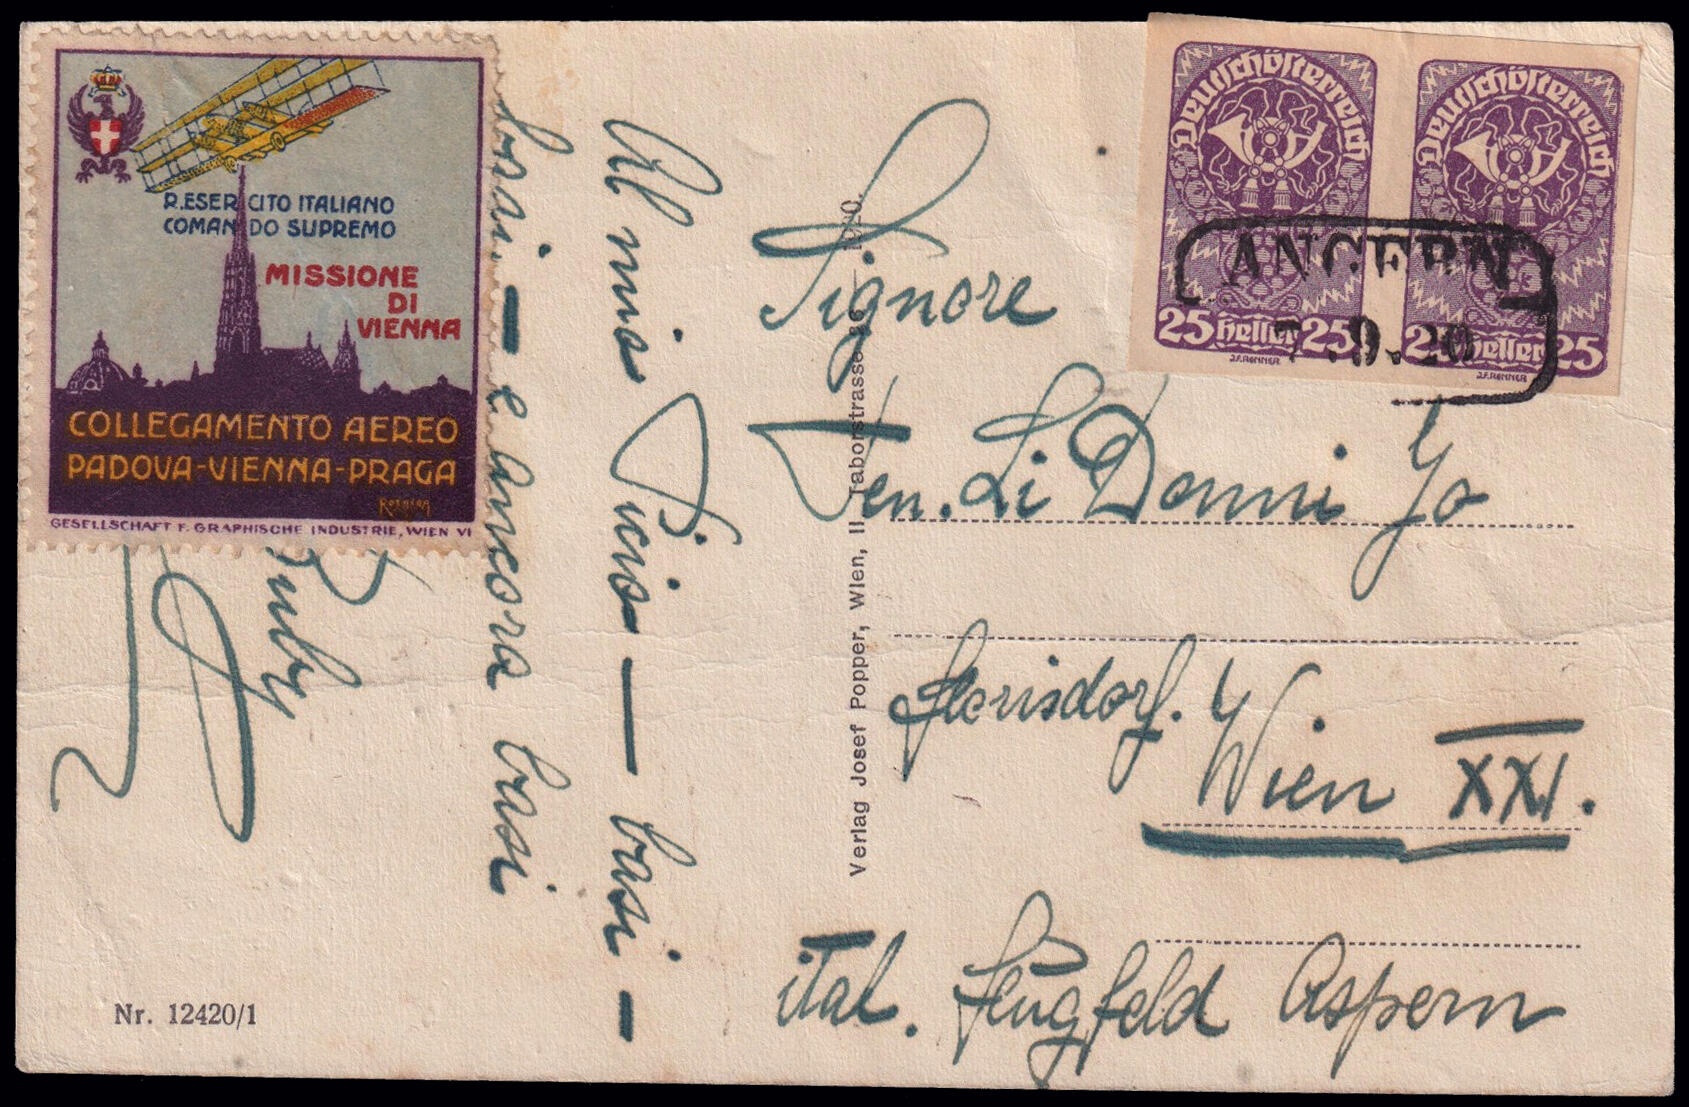 R. ESERCITO ITALIANO
COMANDO SUPREMO
MISSIONE
DI
VIENNA
COLLEGAMENTO AEREO
PADOVA-VIENNA-PRAGA
GESELLSCHAFT F. GRAPHISCHE INDUSTRIE, WIEN VI
Deutschösterreich
25 Heller 25
J.F.RENNER
Deutschösterreich
25 Heller 25
J.F.RENNER
ANGERN
7.9.20
Al mio Picio — basi —
basi — e ancora basi
Verlag Josef Popper, Wien, II Taborstrasse 1920.
Signore
Ten. Li Donni Jo
Wien XXI.
ital. Flugfeld Aspern
Nr. 12420/1